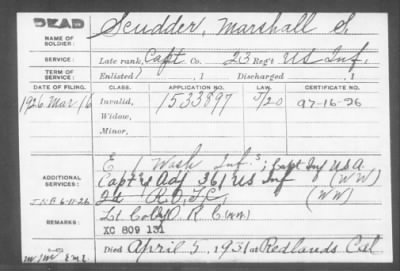 DEAD
NAME OF SOLDIER: Scudder, Marshall S,
SERVICE: Late rank, Capt Co. 23 Reg't US Inf,
TERM OF SERVICE: Enlisted , 1 Discharged , 1
DATE OF FILING. CLASS. APPLICATION NO. LAW. CERTIFICATE NO.
1926 Mar 16 Invalid, 1533897 J/20
Widow,
Minor,
ADDITIONAL SERVICES: E 1 Wash Inf.; Capt Inf U.S.A.
Capt & Adj 361 US Inf (WW)
R.O.T.C, (WW)
REMARKS: Lt Col O.R.C (WW)
XC 809 131
Died April 5, 1931 at Redlands Cal